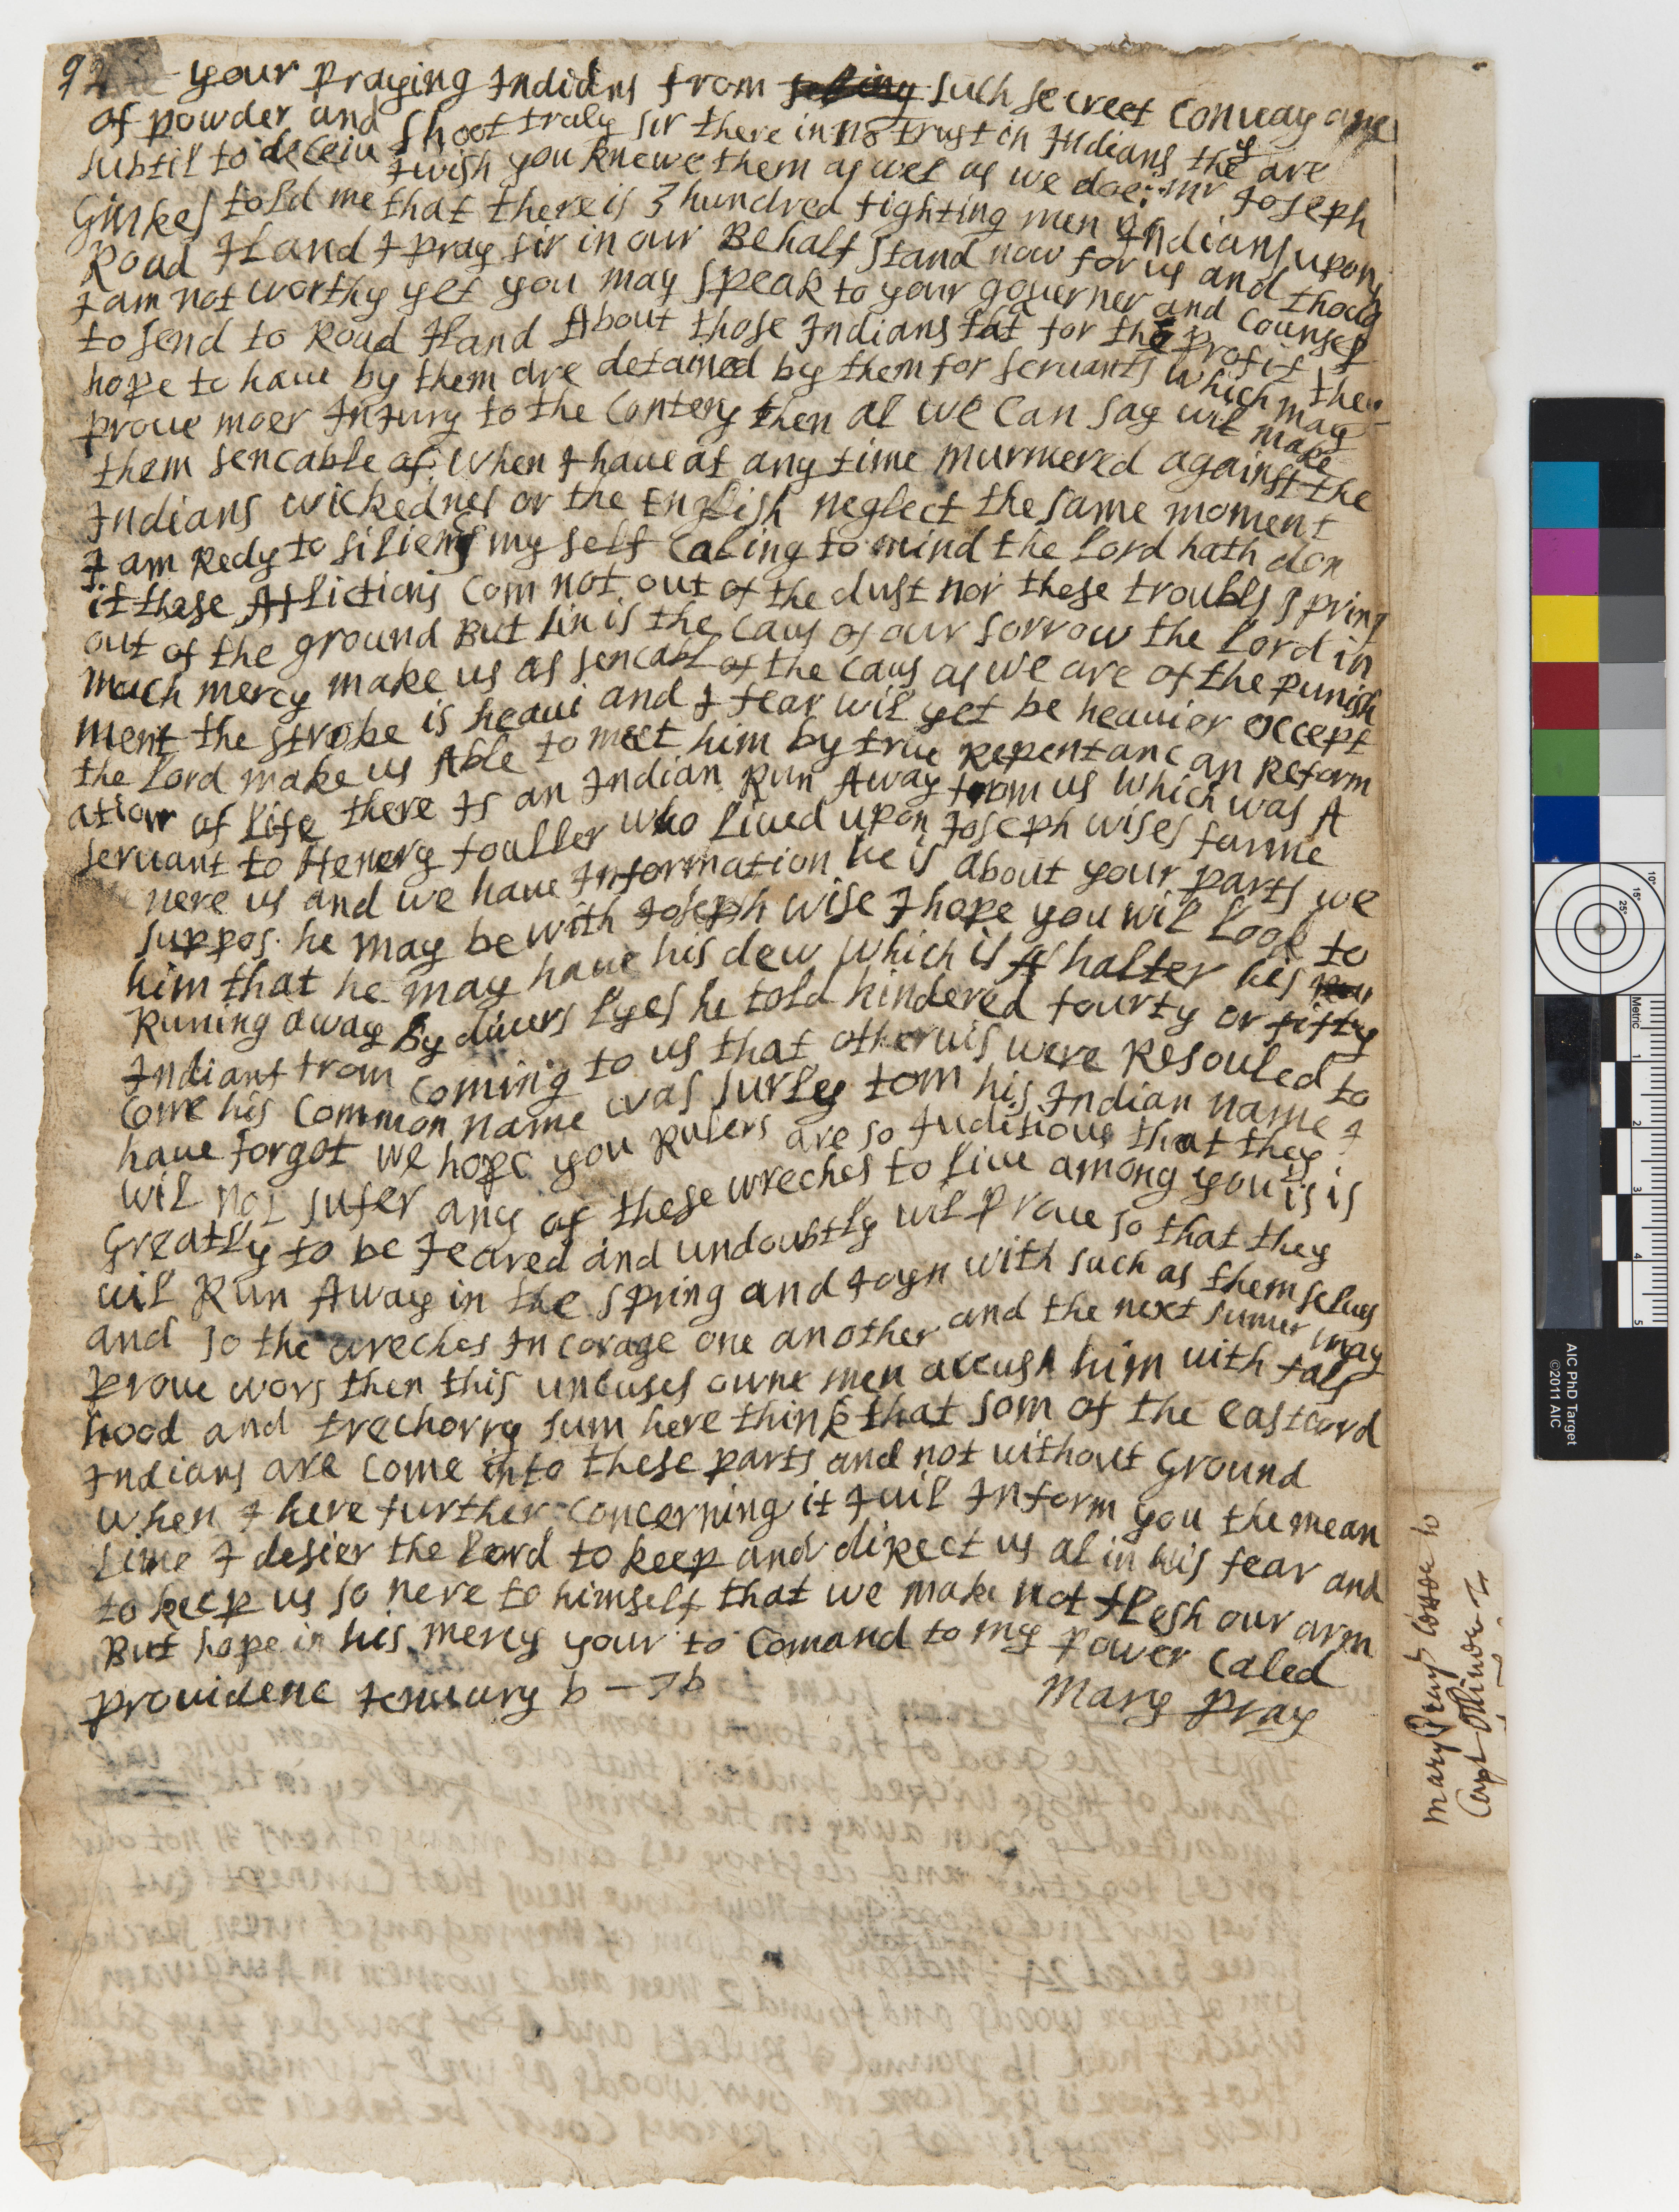 92 your praying Indians from such secreet conuayanc
of powder and shoot truly sir there in no trust in Indians they are
subtil to deceiu I wish you knewe them as wel as we doe: mr Joseph
Ginkes told me that there is 3 hundred fighting men of Indians upon
Road Iland I pray sir in our Behalf stand now for us and thoug
I am not worthy yet you may speak to your gouerner and Counsel
to send to Road Iland About those Indians tat for the profit they
hope to haue by them are detained by them for seruants which may
proue moer Injury to the Contery then al we Can say wil make
them sencable of: when I haue at any time murmered against the
Indians wickednes or the English neglect the same moment
I am Redy to siliens my self Caling to mind the Lord hath don
it these Aflictions Com not out of the dust nor these troubls spring
out of the ground But sin is the Caus of our sorrow the Lord in
much mercy make us as sencabl of the Caus as we are of the punish
ment the stroke is heaui and I fear wil yet be heauier except
the Lord make us Able to meet him by true Repentanc an Reform
ation of life there Is an Indian Run Away from us which was A
seruant to Henerg fouller who liued upon Joseph wises farme
nere us and we haue Information he is about your parts we
suppos he may be with Joseph wise I hope you wil Look to
him that he may haue his dew which is A halter his
Runing away By diuers lyes he told hindered fourty or fifty
Indians from coming to us that otherwis were Resouled to
Come his Common name was surley tom his Indian name I
haue forgot we hope you Rulers are so Juditious that they
wil not sufer any of these wreches to liue among you is is
Greatly to be feared and undoubtly wil proue so that they
wil Run Away in the spring and Joyn with such as themselues
and so the wreches Incorage one another and the next sumer may
proue wors then this uncuses owne men accuse him with fals
hood and trechorry sum here think that som of the eastword
Indians are come into these parts and not without Ground
when I here further Concerning it I wil Inform you the mean
time I desier the Lord to keep and direct us al in his fear and
to keep us so nere to himself that we make not flesh our arm
But hope in his mercy your to Comand to my power Caled
prouidenc Jenuary Mary Pray
Mary Pray to
Capt Oliuer
AIC PhD Target
©2011 AIC
Metric
1
2
3
4
5
10°
15°
25°